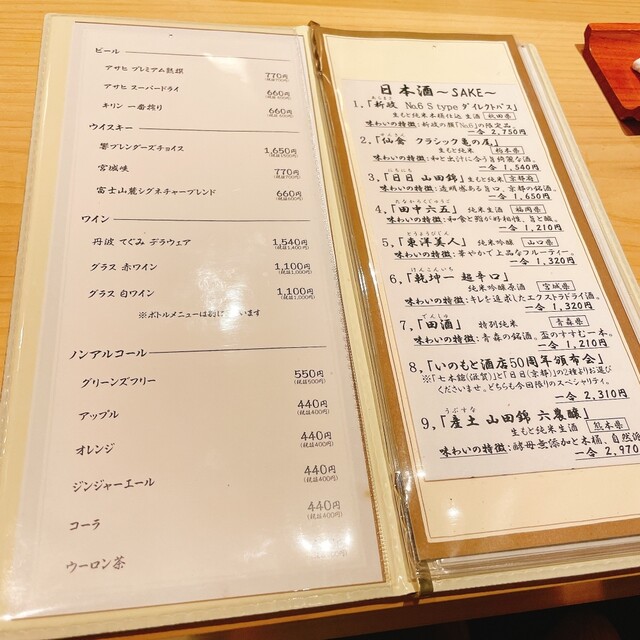 ビール
アサヒ プレミアム熟撰 770円
(税抜700円)
アサヒ スーパードライ 660円
(税抜600円)
キリン 一番搾り 660円
(税抜600円)
ウイスキー
響ブレンダーズチョイス 1,650円
(税抜1500円)
宮城峡 770円
(税抜700円)
富士山麓シグネチャーブレンド 660円
(税抜600円)
ワイン
丹波 てぐみ デラウェア 1,540円
(税抜1,400円)
グラス 赤ワイン 1,100円
(税抜1,000円)
グラス 白ワイン 1,100円
(税抜1,000円)
※ボトルメニューは別にございます
ノンアルコール
グリーンズフリー 550円
(税抜500円)
アップル 440円
(税抜400円)
オレンジ 440円
(税抜400円)
ジンジャーエール 440円
(税抜400円)
コーラ 440円
(税抜400円)
ウーロン茶
日本酒～SAKE～
あらまさ
1,「新政 No.6 S type ダイレクトパス」
生もと純米木桶仕込 生酒 秋田県
味わいの特徴：新政の顔「No.6」の限定品。
一合 2,750円
せんきん
2,「仙禽 クラシック亀の尾」
生もと純米 栃木県
味わいの特徴：和と出汁に合う旨綺麗な酒。
一合 1,540円
にちにち
3,「日日 山田錦」生もと純米 京都府
味わいの特徴：透明感ある旨口、京都の銘酒。
一合 1,650円
たなかろくじゅうご
4,「田中六五」純米生酒 福岡県
味わいの特徴：和食と鮨が好相性、旨と酸。
一合 1,210円
とうようびじん
5,「東洋美人」純米吟醸 山口県
味わいの特徴：華やかで上品なフルーティー。
一合 1,320円
けんこんいち
6,「乾坤一 超辛口」
純米吟醸原酒 宮城県
味わいの特徴：キレを追求したエクストラドライ酒。
一合 1,320円
でんしゅ
7,「田酒」特別純米 青森県
味わいの特徴：青森の銘酒、盃のすすむ一本。
一合 1,210円
8,「いのもと酒店50周年頒布会」
※「七本鎗(滋賀)」と「日日(京都)」の2種よりお選び
くださいませ。どちらも今回限りのスペシャリティ。
一合 2,310円
うぶすな
9,「産土 山田錦 六農醸」
生もと純米生酒 熊本県
味わいの特徴：酵母無添加と木桶、自然派
一合 2,970